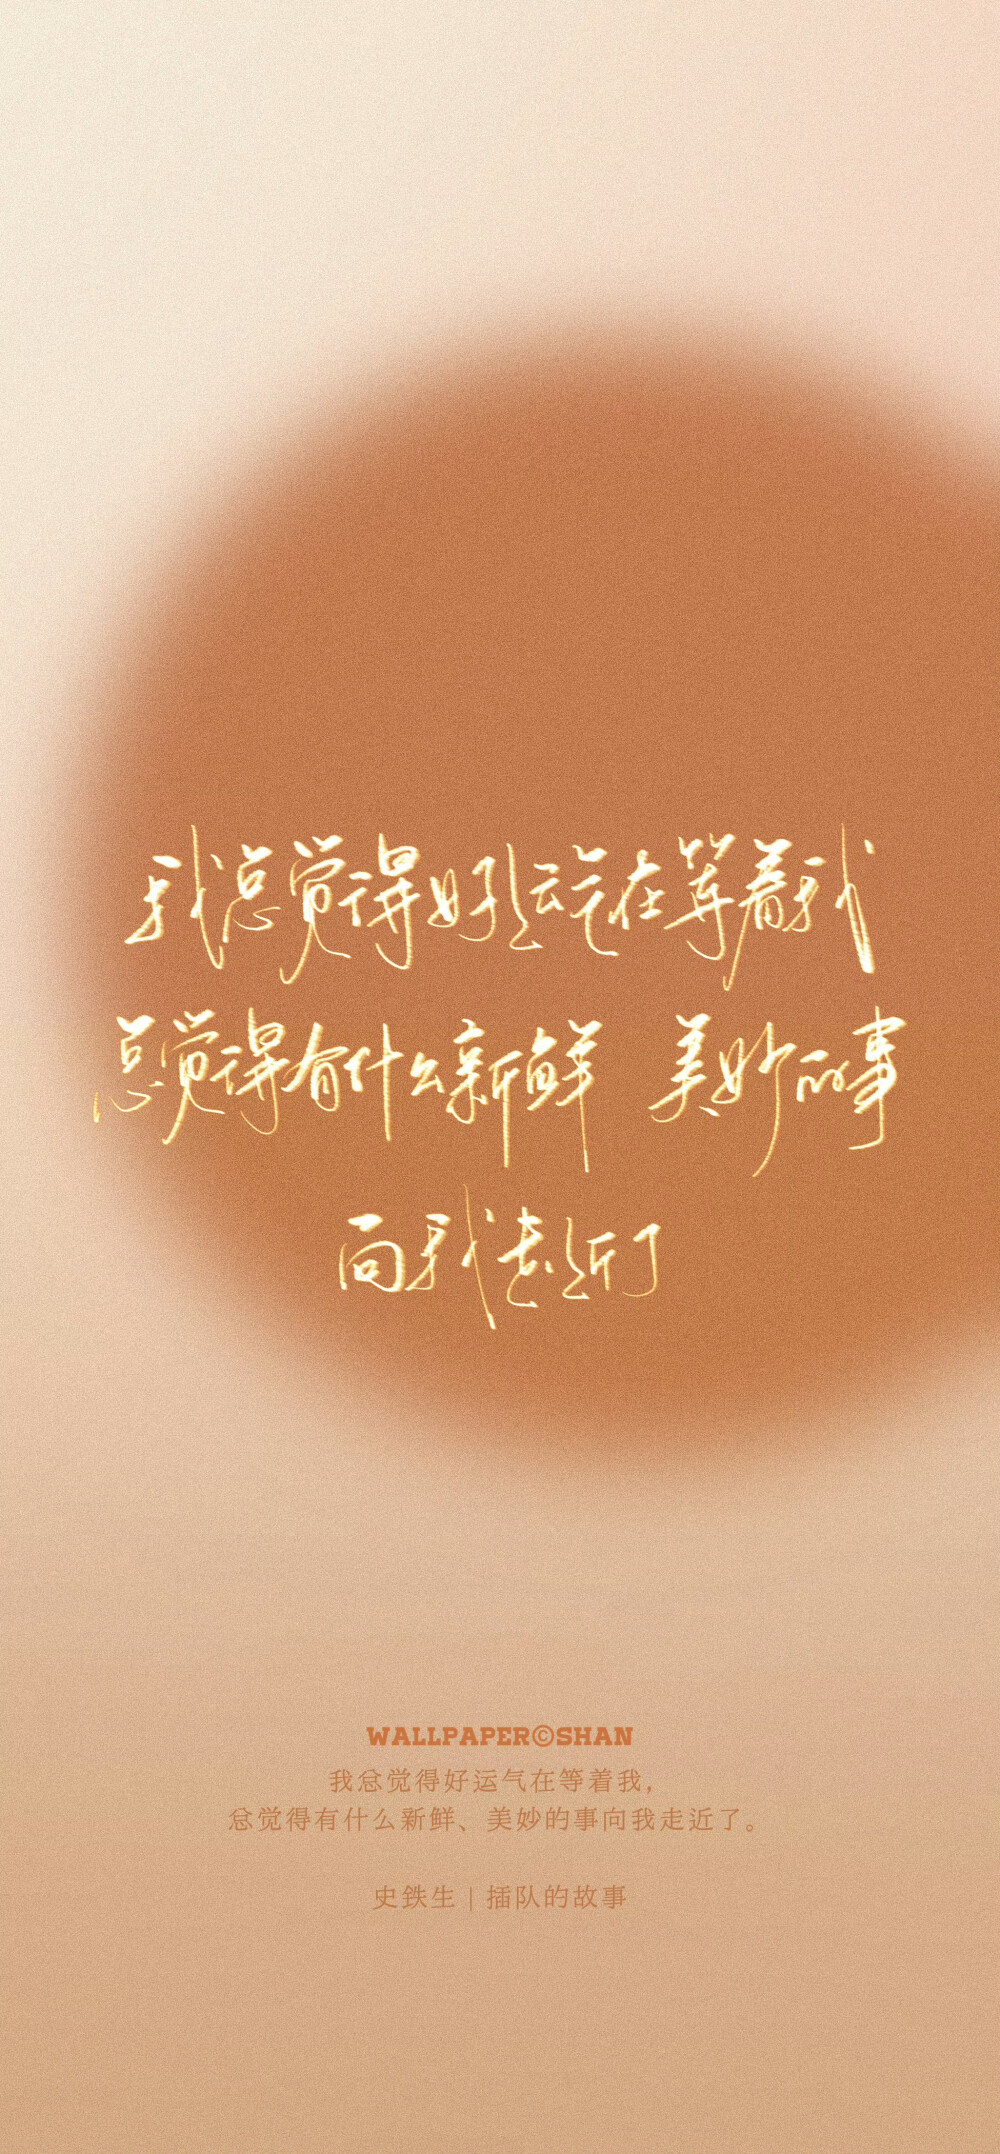 我总觉得好运气在等着我
总觉得有什么新鲜 美妙的事
向我走近了
WALLPAPER©SHAN
我总觉得好运气在等着我,
总觉得有什么新鲜、美妙的事向我走近了。
史鉄生 | 插队的故事